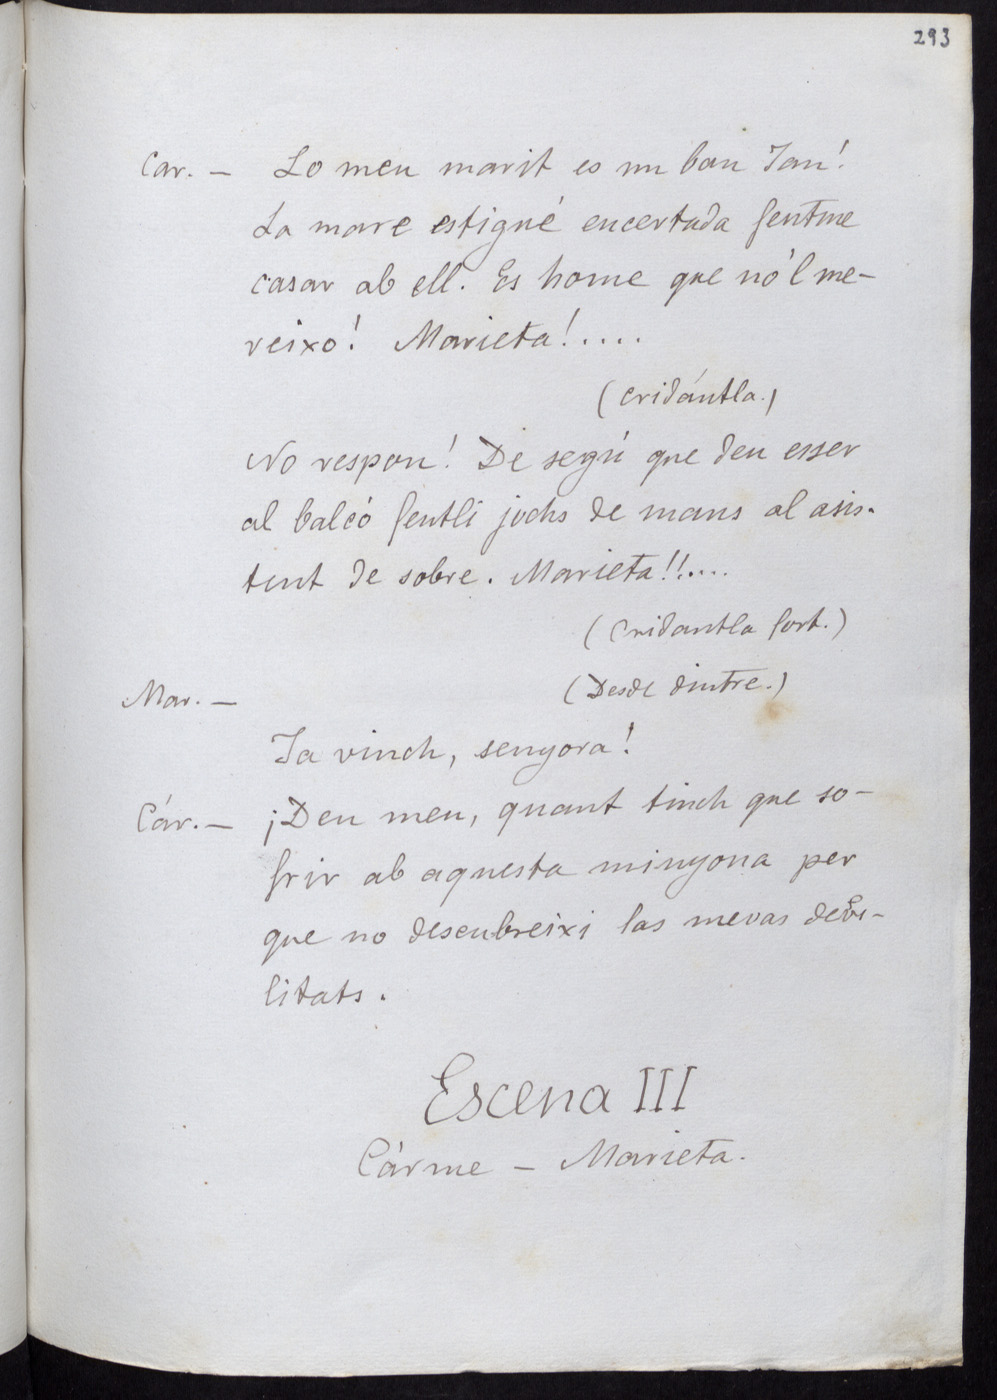 293
Car. — Lo meu marit es un bon Jan!
La mare estigué encertada fentme
casar ab ell. Es home que no'l me-
reixo! Marieta!....
(cridántla.)
No respon! De segú que deu esser
al balcó fentli jochs de mans al asis-
tent de sobre. Marieta!!....
(Cridantla fort.)
Mar. — (Desde dintre.)
Ja vinch, senyora!
Cár. — ¡Deu meu, quant tinch que so-
frir ab aquesta minyona per
que no descubreixi las mevas debi-
litats.
Escena III
Cárme — Marieta.